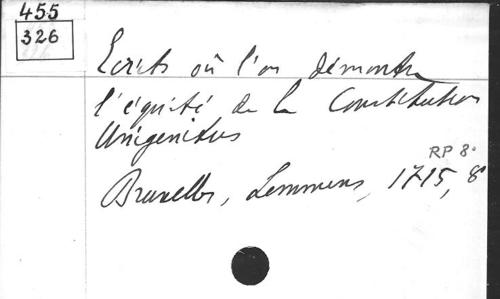 455
326
Ecrits où l'on démontre
l'équité de la Constitution
Unigenitus
RP 8°
Bruxelles, Lemmens, 1715, 8°